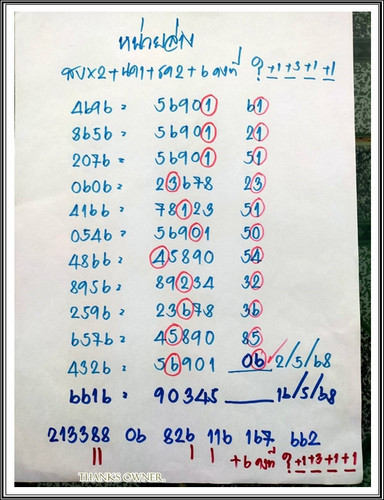 หน่วยล่าง
ชบ×2+นล1+รล2+6 คงที่ ? +1+3+1+1
4696 = 56901 61
8656 = 56901 21
2076 = 56901 51
0606 = 23678 23
4166 = 78123 51
0546 = 56901 50
4866 = 45890 54
8956 = 89234 32
2596 = 23678 36
6576 = 45890 85
4326 = 56901 06 ✓ 2/5/68
6616 = 90345 ____ 16/5/68
213388 06 826 116 167 662
11 1 1 +6 คงที่ ? +1+3+1+1
THANKS OWNER